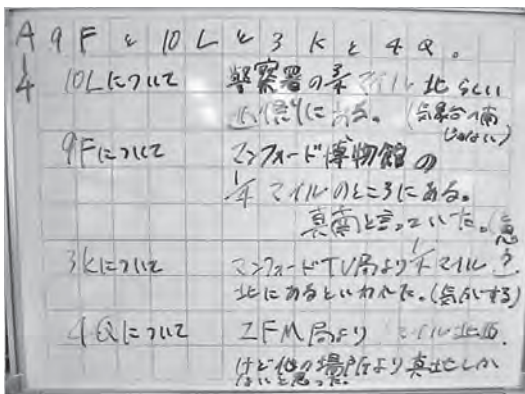 A 9F と 10L と 3K と 4Q。
4 10Lについて 警察署の3/4マイル北らしい
にある。(気象台の南
じゃない)
9Fについて マンフォード博物館の
1/4マイルのところにある。
真南と言っていた。
3Kについて マンフォードTV局より1/4マイル
北にあるといわれた。(気がする)
4Qについて ZFM局より マイル北西
けど他の場所より真北しか
ないと思った。